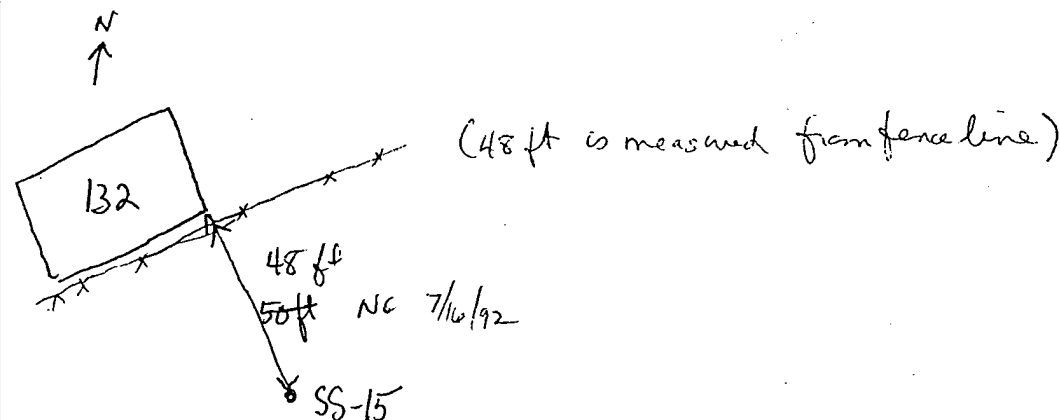 N
(48 ft is measured from fence line)
132
48 ft
50ft NC 7/16/92
SS-15